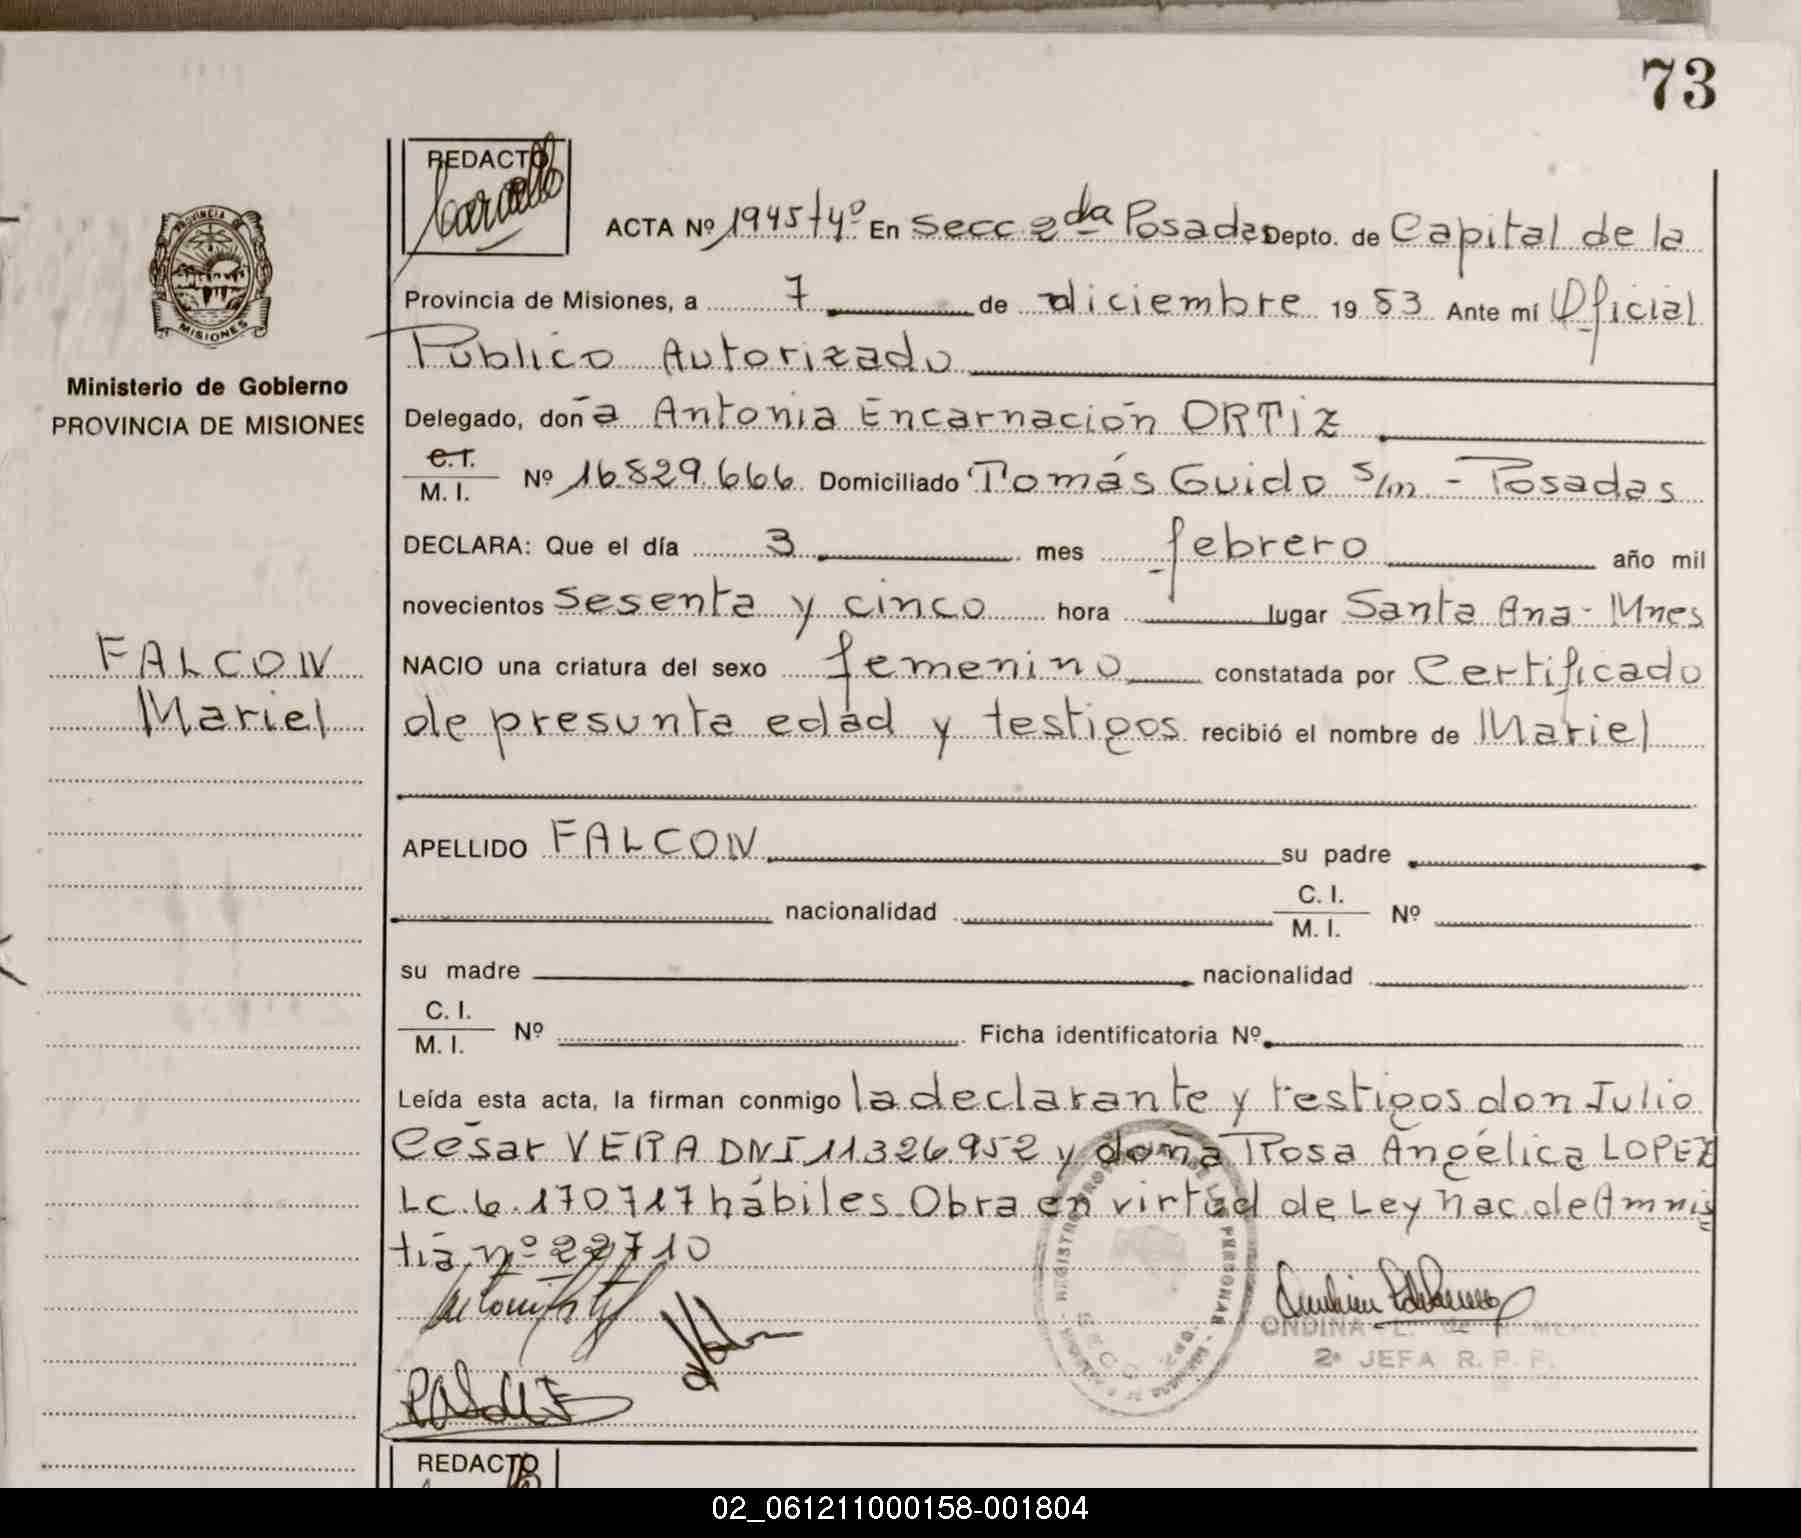 73
REDACTO
ACTA Nº 1945 t 4º En Secc 2da Posadas Depto. de Capital de la
PROVINCIA DE
MISIONES
Provincia de Misiones, a 7 de diciembre 1983 Ante mí Oficial
Público Autorizado
Ministerio de Gobierno
PROVINCIA DE MISIONES
Delegado, doña Antonia Encarnación ORTIZ
C.I.
M. I. Nº 16.829.666 Domiciliado Tomás Guido s/n - Posadas
DECLARA: Que el día 3 mes febrero año mil
novecientos sesenta y cinco hora lugar Santa Ana - Mnes
FALCON
Mariel
NACIO una criatura del sexo femenino constatada por Certificado
de presunta edad y testigos recibió el nombre de Mariel
APELLIDO FALCON su padre
nacionalidad C. I. M. I. Nº
su madre nacionalidad
C. I. M. I. Nº Ficha identificatoria Nº
Leída esta acta, la firman conmigo la declarante y testigos don Julio
César VERA DNI 11326.952 y doña Rosa Angélica LOPEZ
LC. 6.170717 hábiles. Obra en virtud de Ley Nac. de Amnis
tía nº 22710
ONDINA E. de
2ª JEFA R. P. P.
REDACTO
02_061211000158-001804